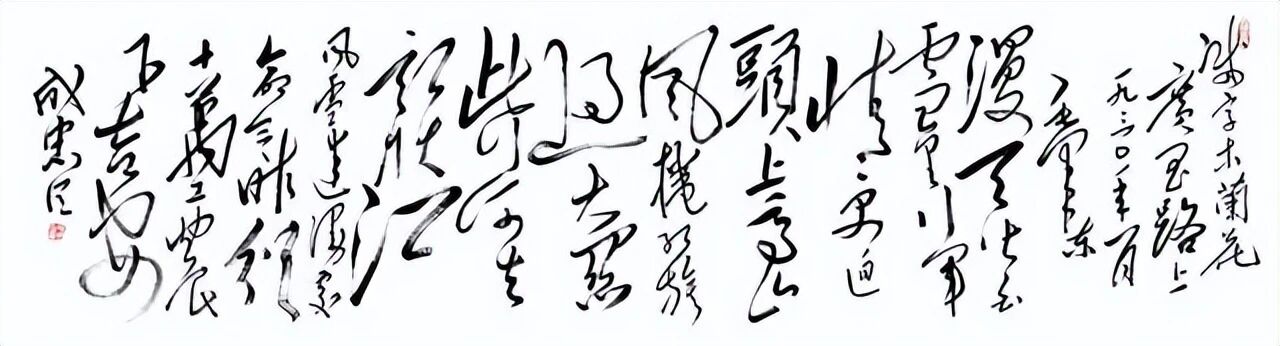 減字木蘭花
廣昌路上
一九三〇年二月
毛泽东
漫天皆白
雪里行軍
情更迫
頭上高山
風捲红旗
过大關
此行何去
赣江
风雪迷漫处
命令昨颁
十萬工農
下吉安
成忠